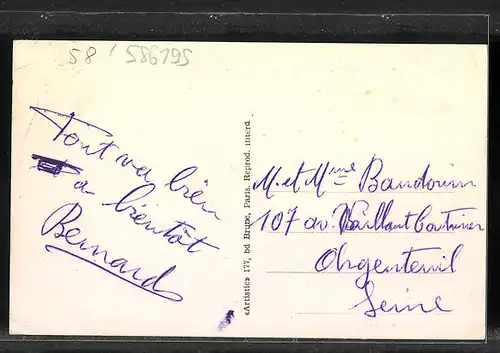 58 586195
Tout va bien
a bientôt
Bernard
«Artistic» 177, bd Brune, Paris. Reprod. interd.
M. et Mme Baudouin
107 av. Vaillant Couturier
Argenteuil
Seine